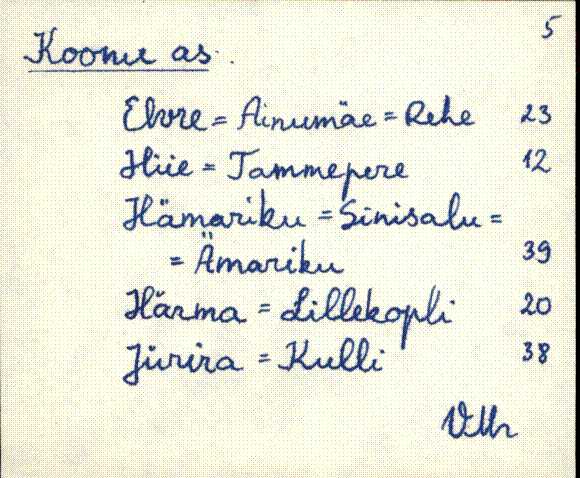 5
Koonu as.
Elvre = Ainumäe = Rehe 23
Hiie = Tammepere 12
Hämariku = Sinisalu =
= Ämariku 39
Härma = Lillekopli 20
Jürira = Kulli 38